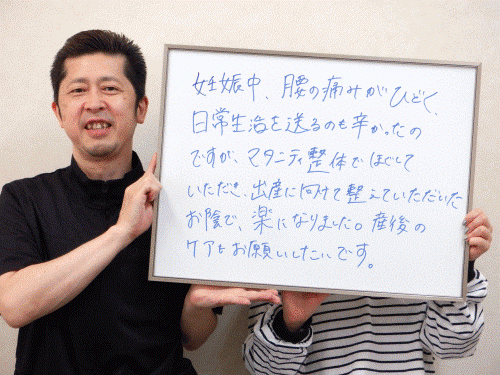 妊娠中、腰の痛みがひどく、
日常生活を送るのも辛かったの
ですが、マタニティ整体でほぐして
いただき、出産に向けて整えていただいた
お陰で、楽になりました。産後の
ケアもお願いしたいです。